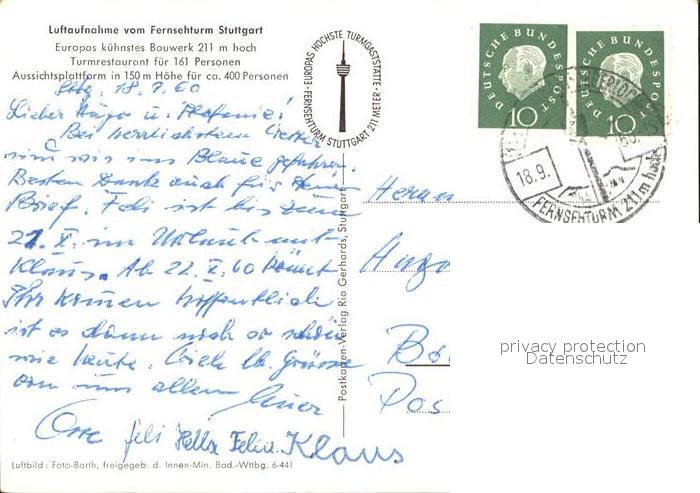 Luftaufnahme vom Fernsehturm Stuttgart
Europas kühnstes Bauwerk 211 m hoch
Turmrestaurant für 161 Personen
Aussichtsplattform in 150 m Höhe für ca. 400 Personen
EUROPAS HÖCHSTE TURMGASTSTÄTTE
FERNSEHTURM STUTTGART 211 METER
DEUTSCHE BUNDESPOST
10
DEUTSCHE BUNDESPOST
10
18.9.
FERNSEHTURM 211m hoch
Stbg. 18.9.60
Lieber Hugo u.
Bei herrlichstem Wetter
sind wir ins Blaue gefahren.
Besten Dank auch für Deinen
Brief. Feli ist bis zum
21. X. im Urlaub mit
Klaus. Ab 22. X. 60 könnt
Ihr kommen hoffentlich
ist es dann noch so schön
wie heute. Viele lb. Grüsse
von uns allen Euer
Feli Hella Klaus
Herrn
Hugo
Postkarten-Verlag Ria Gerhards, Stuttgart
privacy protection
Datenschutz
Luftbild: Foto-Barth, freigegeb. d. Innen-Min. Bad.-Wttbg. 6-441